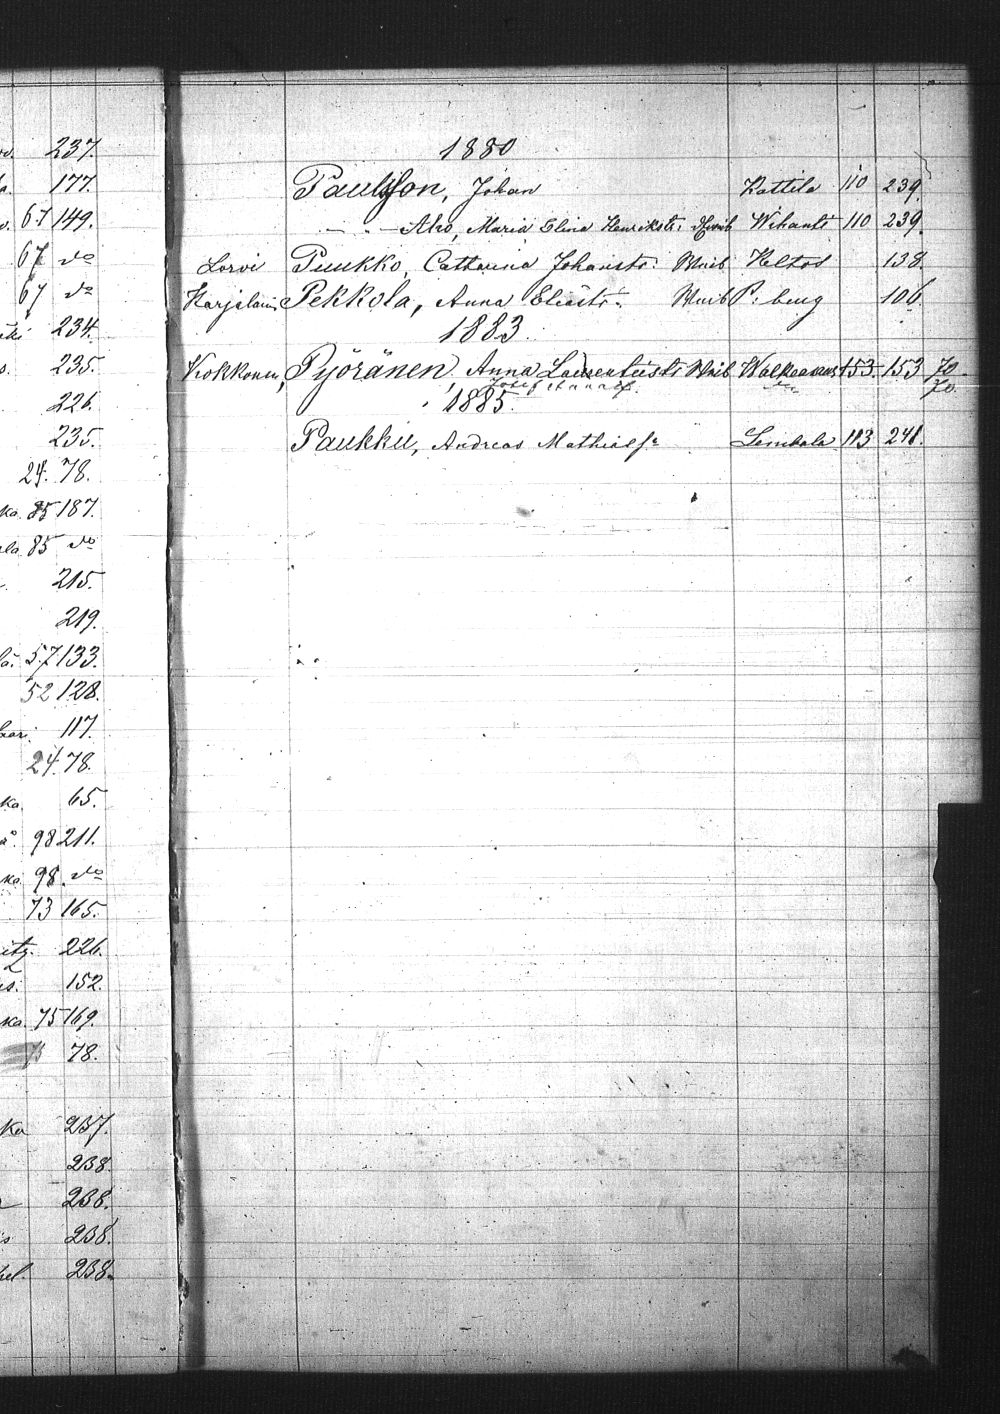 237.
177.
67 149.
67 do
67 do
234.
235.
226.
235.
24. 78.
ka. 85 187.
85 do
215.
219.
57 133.
52 128.
117.
24. 78.
ka. 65.
98 211.
ka 98. do
73 165.
226.
152.
ka. 75 169.
78.
ka 237.
238.
238.
238.
238.
1880
Paulsson, Johan Kattila 110 239.
- " - Aho, Maria Elina Henriksdr. Wihanti 110 239.
Lorvi Puukko, Catharina Johansdr. Wuib Keltos 138.
Karjalain Pekkola, Anna Eliedr. Wuib P:burg 106.
1883.
Kokkonen, Pyöränen, Anna Laurentiidr Wuib 153. 153 70.
Josef 70.
1885.
Paukku, Andreas Mathiass: Lembala 113 241.